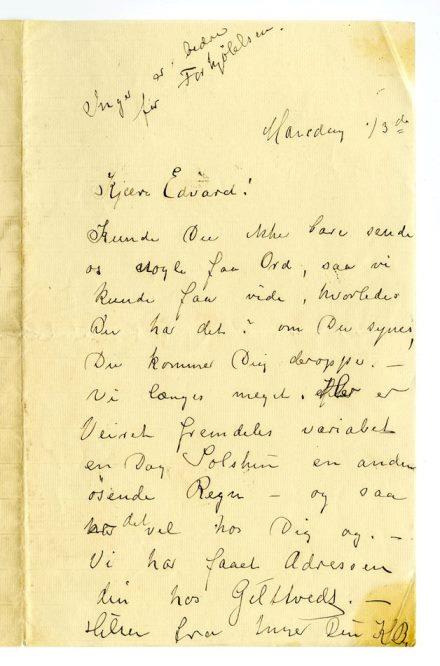 Inger er bedre
før Forkjølelsen.
Mandag 1/3 de
Kjære Edvard!
Kunde Du ikke bare sende
os nogle faa Ord, saa vi
kunde faa vide, hvorledes
Du har det? om Du synes,
Du kommer Dig deroppe. —
Vi længes meget. Her er
Veiret fremdeles variabelt
en Dag Solskin en anden
ösende Regn — og saa
det vel hos Dig og. —
Vi har faaet Adressen
din hos —
Hilsen fra Din